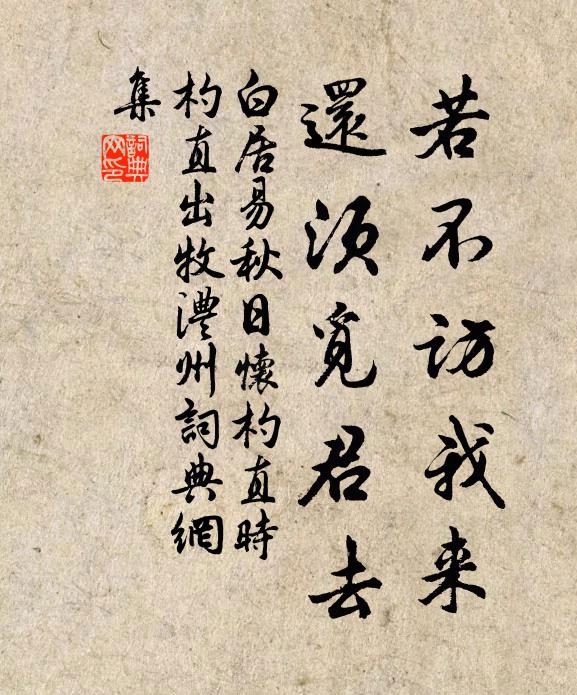 若不访我来
還须覓君去
白居易秋日懷杓直時
杓直出牧澧州詞典網
集
詞典网印